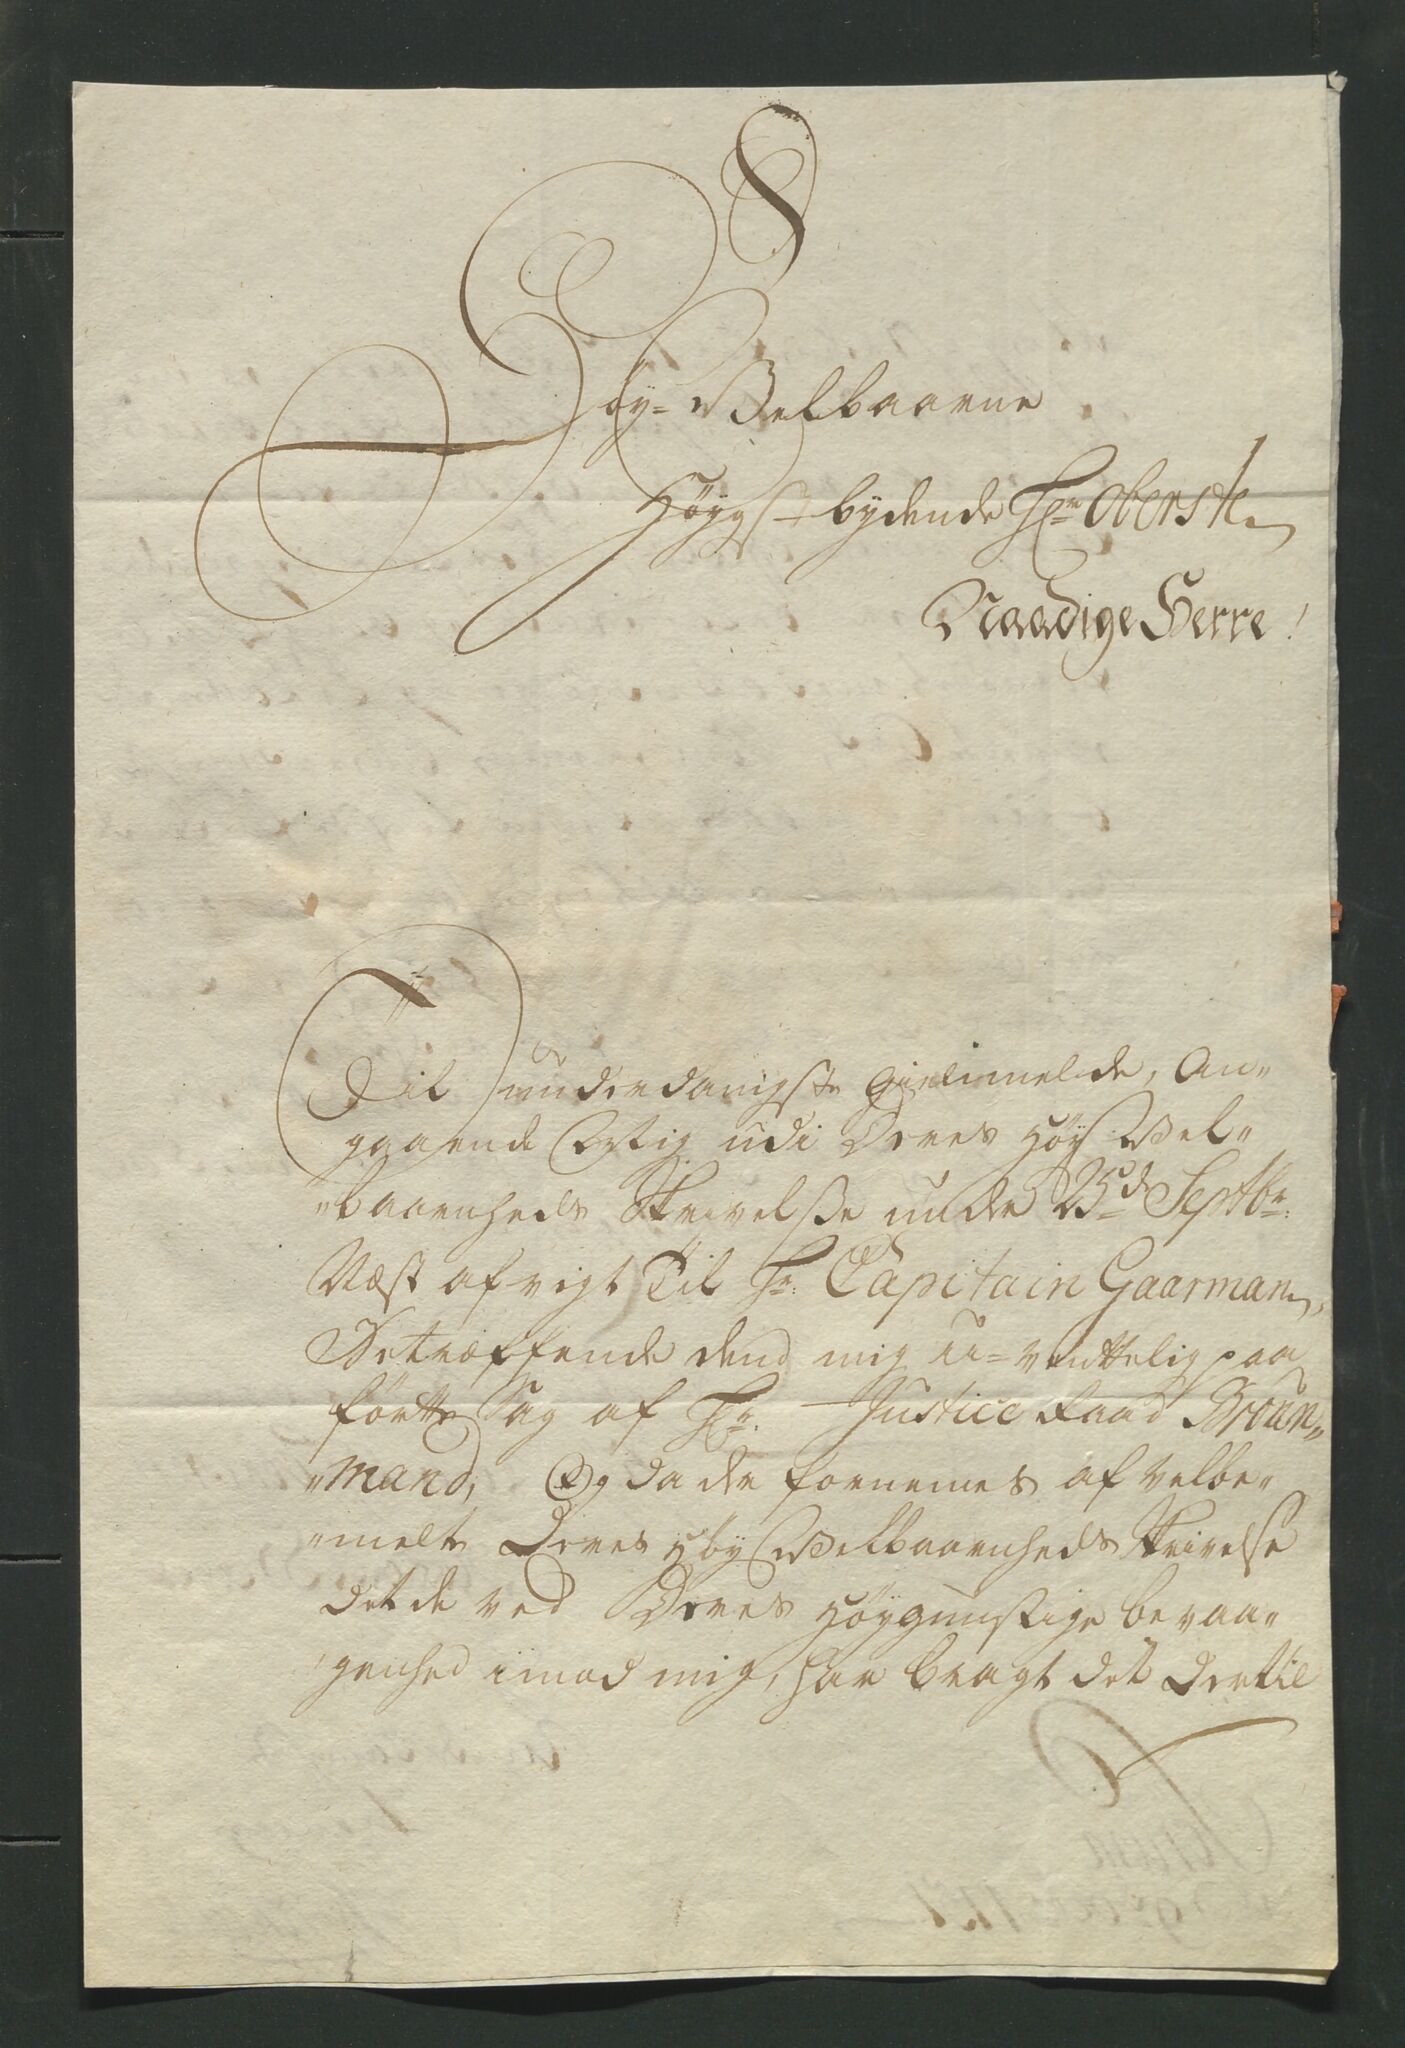 Høy-Velbaarne
Høygstbydende Hr Obersten
Naadige Herre!
Til underdanigste Gienmelde, An-
gaaende Artig udi Deres Høy Vel-
"baarnheds Skrivelsse under 25de Septbr:
Næst afvigt Til Hr: Capitain Gaarman,
Betræffende dend mig u-venttelig paa
førtte Sag af Hr. Justice Raad Broun-
"mand, Og da der fornemes af velbe-
"melte Deres Høy Velbaarnheds Skrivelse
det de ved Deres Høygunstige bevaa-
genhed imod mig, har bragt det dertil